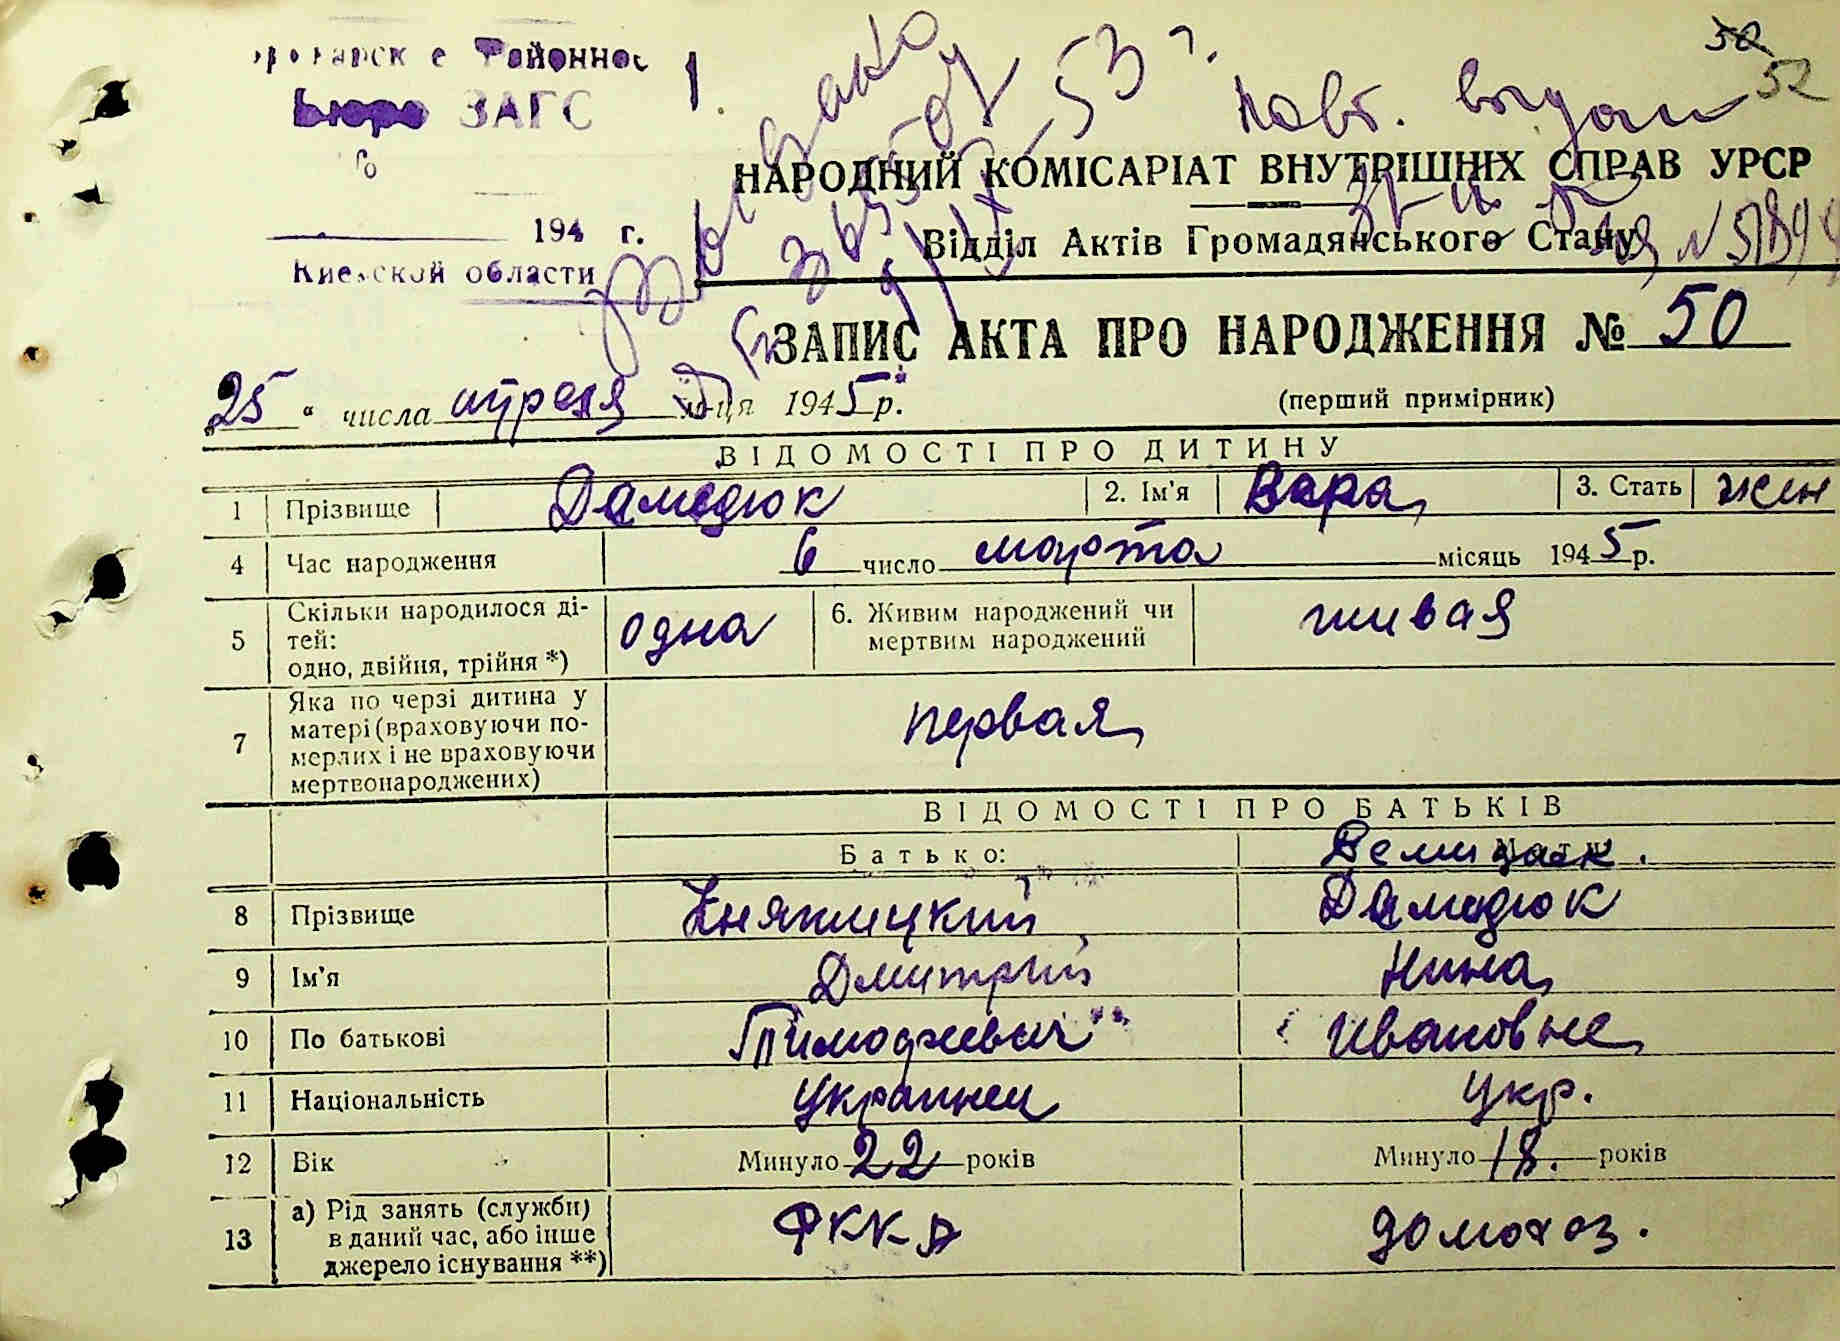 Районное
Бюро ЗАГС
1
53 г.
Повт.
50
52
НАРОДНИЙ КОМІСАРІАТ ВНУТРІШНІХ СПРАВ УРСР
194 г.
Відділ Актів Громадянського Стану
Киевской области
ЗАПИС АКТА ПРО НАРОДЖЕННЯ № 50
„25“ числа апреля місяця 1945 р.
(перший примірник)
ВІДОМОСТІ ПРО ДИТИНУ
1 Прізвище Дамедюк 2. Ім'я Вера 3. Стать жен
4 Час народження 6 число марта місяць 1945 р.
5 Скільки народилося ді-
тей:
одно, двійня, трійня *) одна 6. Живим народжений чи
мертвим народжений живая
7 Яка по черзі дитина у
матері (враховуючи по-
мерлих і не враховуючи
мертвонароджених) первая
ВІДОМОСТІ ПРО БАТЬКІВ
Батько:
8 Прізвище Княжицкий Дамедюк
9 Ім'я Дмитрий Нина
10 По батькові Ивановне
11 Національність Украинец Укр.
12 Вік Минуло 22 років Минуло 18. років
13 а) Рід занять (служби)
в даний час, або інше
джерело існування **) РККА домохоз.